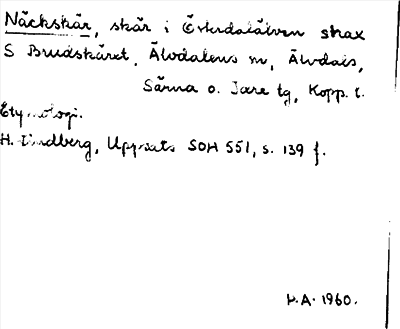 Näckskär, skär i Österdalälven strax
S Brudskäret, Älvdalens sn, Älvdals,
Särna o. Idre tg, Kopp. l.
Etymologi.
H. Lindberg, Uppsats SOH 551, s. 139 f.
H.A. 1960.